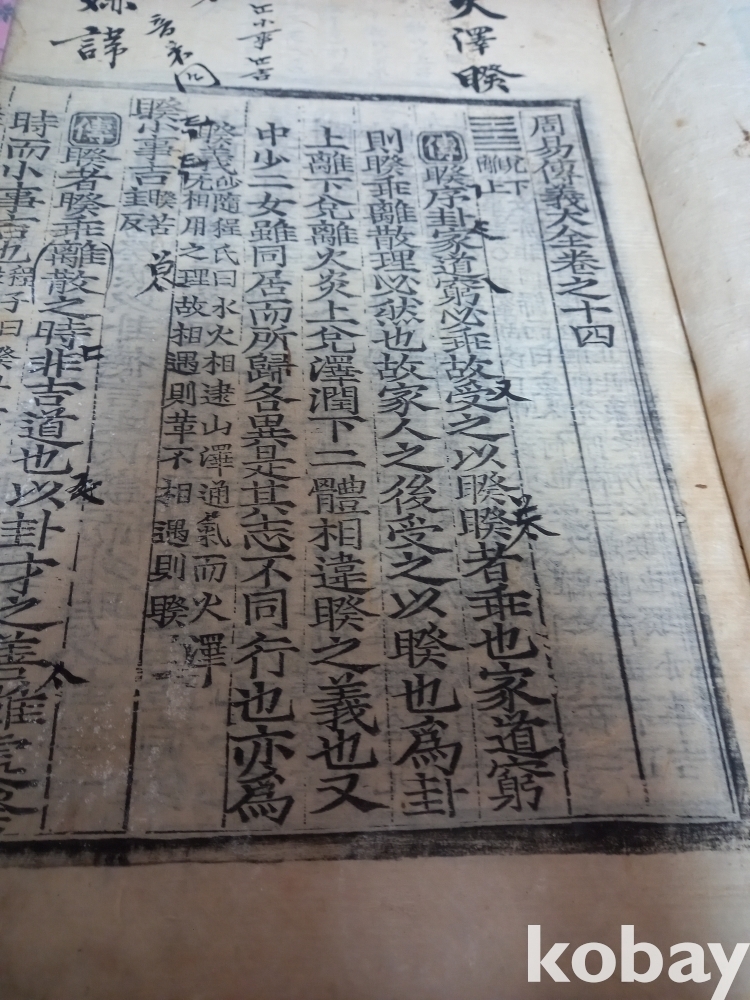 火澤睽
周易傳義大全卷之十四
兌下
離上
傳睽序卦家道窮必乖故受之以睽睽者乖也家道窮
則睽乖離散理必然也故家人之後受之以睽也爲卦
上離下兌離火炎上兌澤潤下二體相違睽之義也又
中少二女雖同居而所歸各異是其志不同行也亦爲
睽義
隨程氏曰水火相逮山澤通氣而火澤
无相用之理故相遇則革不相遇則睽
睽小事吉
睽苦
圭反
傳睽者睽乖離散之時非吉道也以卦才之善雖
時而小事吉也
程子曰睽
諱
kobay